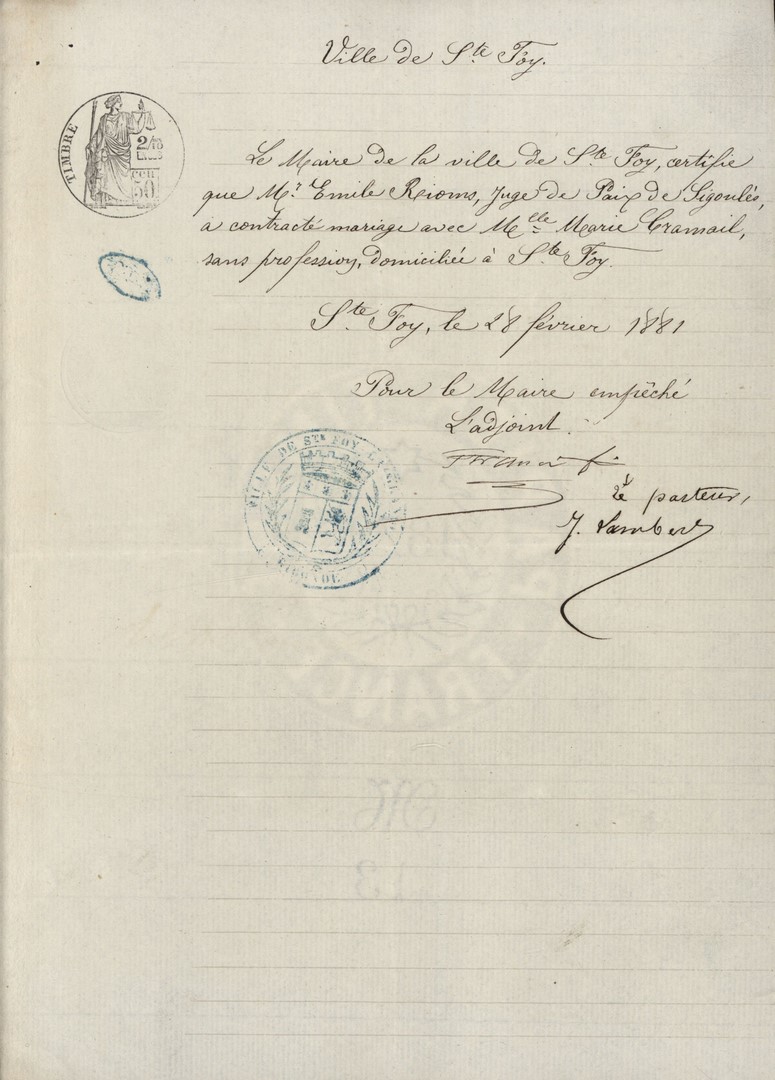 Ville de Ste Foy.
TIMBRE
2/10
EN SUS
50
Le Maire de la ville de Ste Foy, certifie
que Mr Emile Rioms, Juge de Paix de Sigoulès,
a contracté mariage avec Melle Marie Cramail,
sans profession, domiciliée à Ste Foy.
Ste Foy, le 28 février 1881
Pour le Maire empêché
L'adjoint.
VILLE DE STE FOY LA GRANDE
GIRONDE
Le pasteur,
J. Lambert
FRANCE